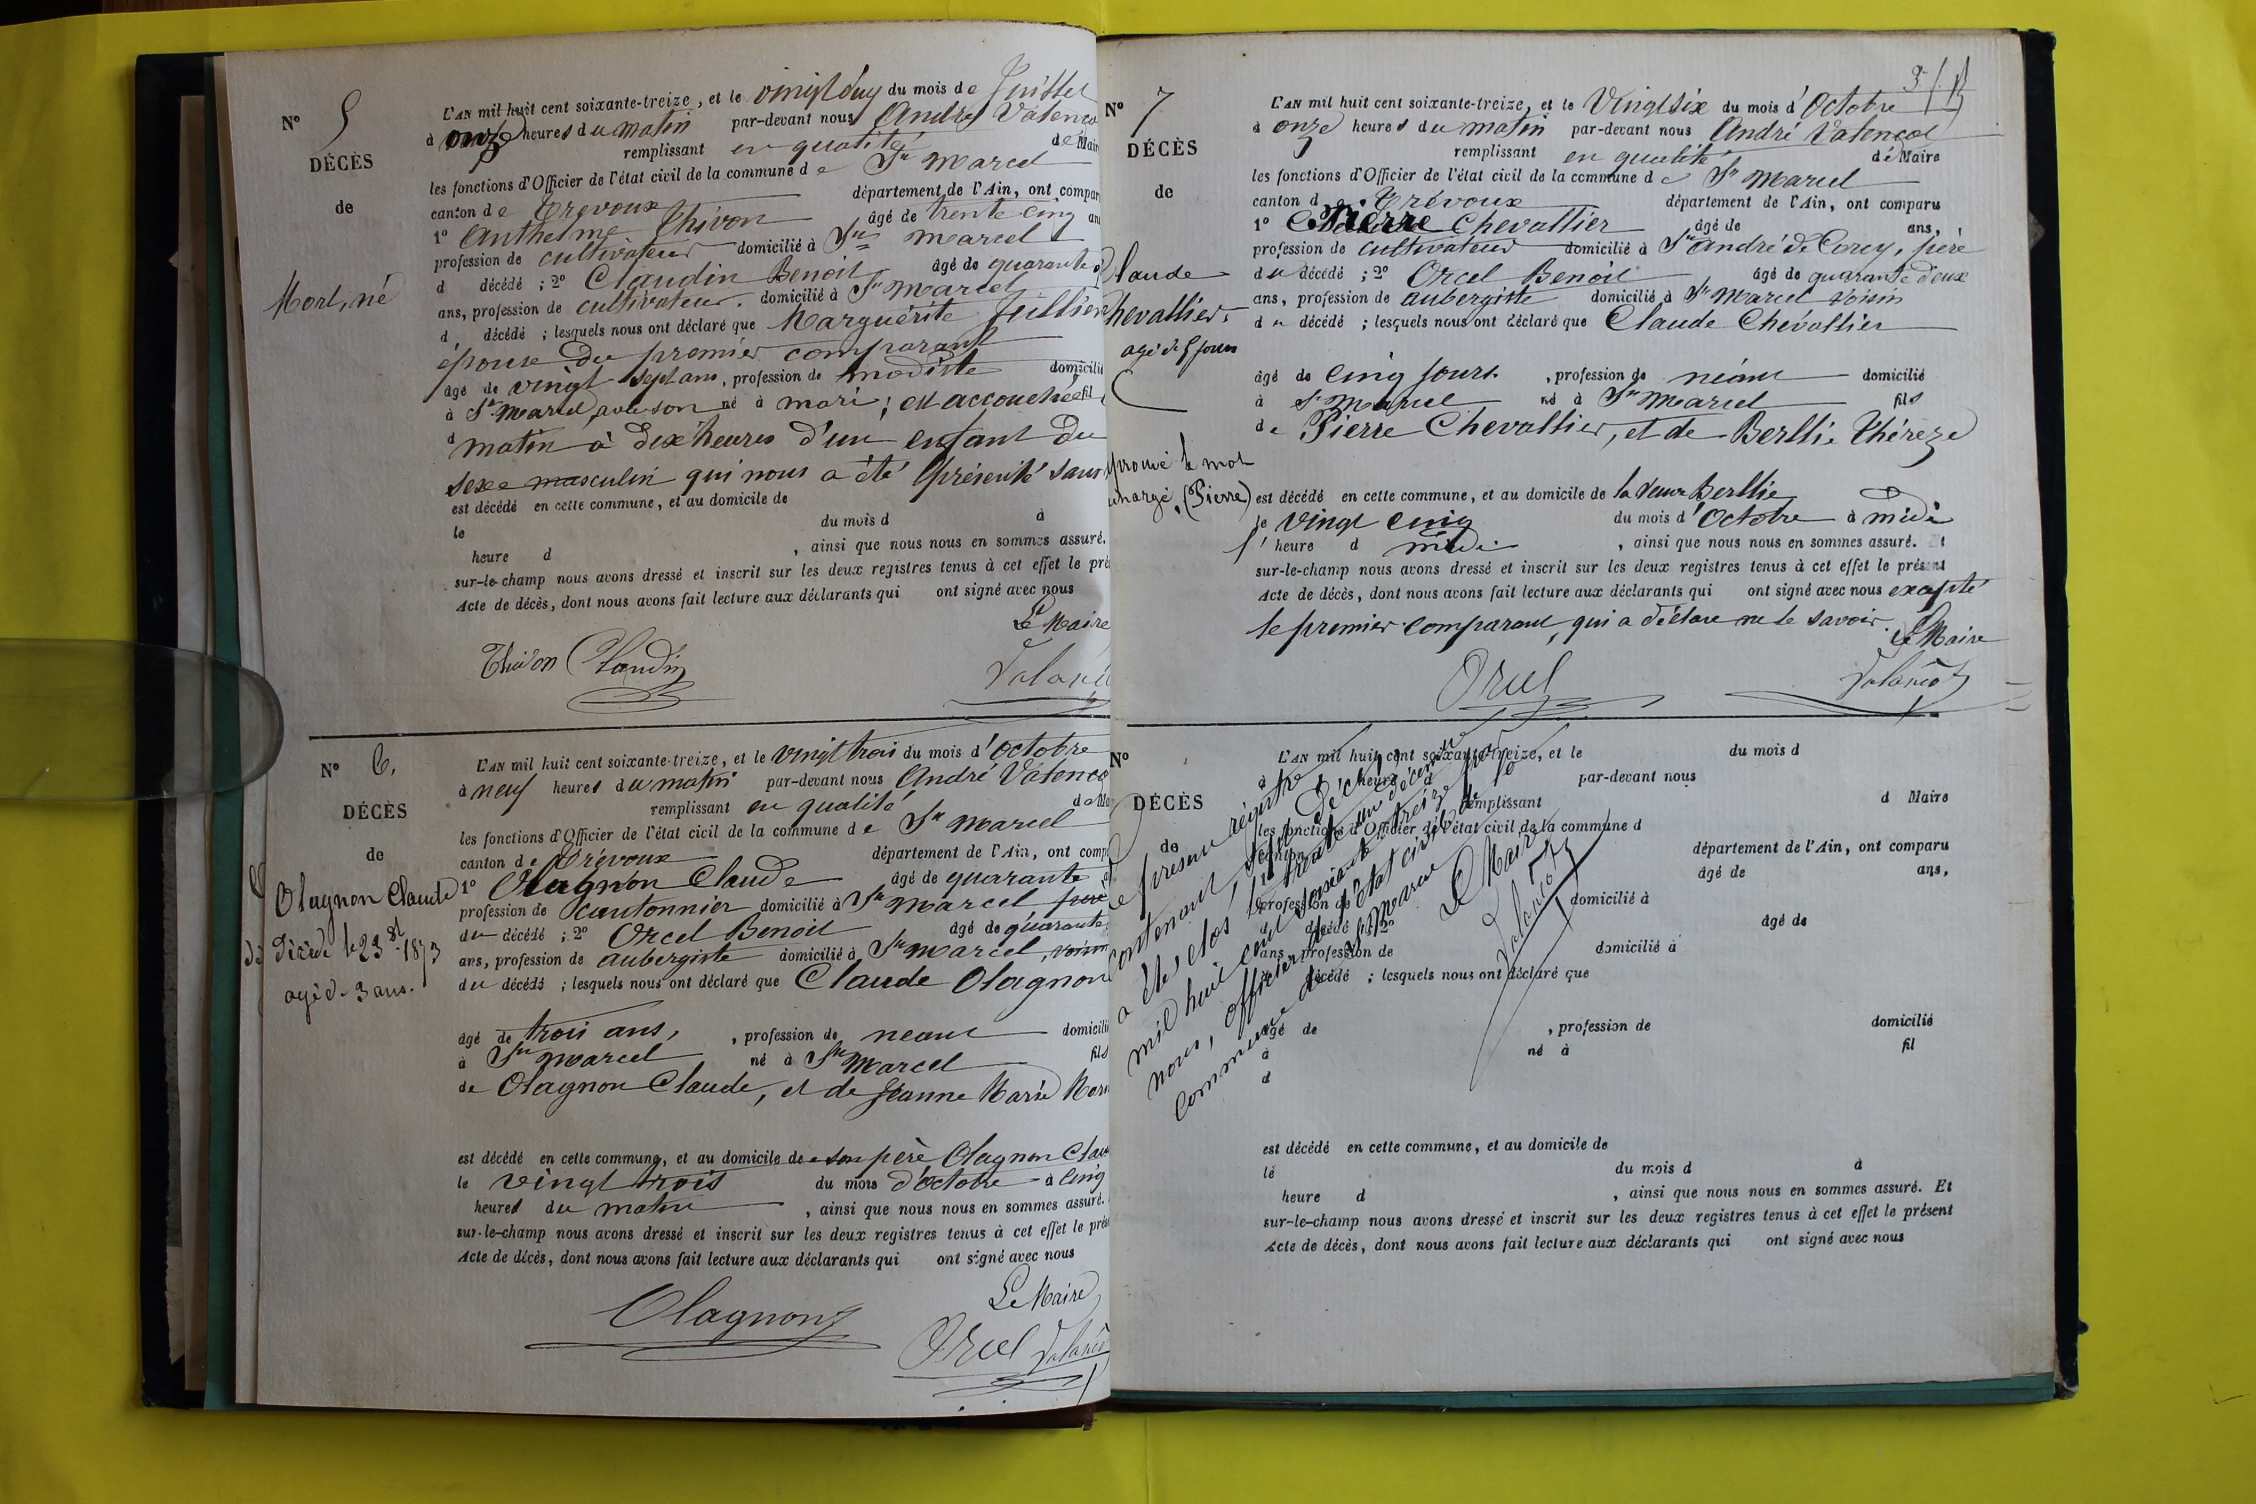 N° 5
DÉCÈS
de
Mort, né
L'AN mil huit cent soixante-treize, et le vingt deux du mois de Juillet
à onze heures du matin par-devant nous André Valenco
remplissant en qualité de Mair
les fonctions d'Officier de l'état civil de la commune de Ste Marcel
canton de Trévoux département de l'Ain, ont compar
1° Anthelme Thivon âgé de trente cinq an
profession de cultivateur domicilié à Ste Marcel
d décédé ; 2° Claudin Benoit âgé de quarante
ans, profession de cultivateur. domicilié à Ste Marcel
d décédé ; lesquels nous ont déclaré que Marguérite Jullien
épouse du premier comparant
âgé de vingt sept ans, profession de modiste domicilié
à St Marcel, avec son né à mari ; est accouchée fil
d matin à dix heures d'un enfant du
sexe masculin qui nous a été présenté sans
est décédé en cette commune, et au domicile de
le du mois d à
heure d , ainsi que nous nous en sommes assuré.
sur-le-champ nous avons dressé et inscrit sur les deux registres tenus à cet effet le pré
Acte de décès, dont nous avons fait lecture aux déclarants qui ont signé avec nous
Le Maire
Thivon Claudin Valanco
N° 6.
DÉCÈS
de
Olagnon Claude
Décédé le 23 8bre 1873
agé de 3 ans.
L'AN mil huit cent soixante-treize, et le vingt trois du mois d'Octobre
à neuf heures du matin par-devant nous André Valenco
remplissant en qualité de Mai
les fonctions d'Officier de l'état civil de la commune de Ste Marcel
canton de Trévoux département de l'Ain, ont comp
1° Olagnon Claude âgé de quarante
profession de cantonnier domicilié à Ste Marcel père
du décédé ; 2° Orcel Benoit âgé de quarante
ans, profession de aubergiste domicilié à Ste Marcel, voisin
du décédé ; lesquels nous ont déclaré que Claude Olagnon
âgé de trois ans, , profession de néant domicilié
à Ste Marcel né à Ste Marcel fils
de Olagnon Claude, et de Jeanne Marie
est décédé en cette commune, et au domicile de son père Olagnon Clau
le vingt trois du mois d'octobre à cinq
heures du matin , ainsi que nous nous en sommes assuré.
sur-le-champ nous avons dressé et inscrit sur les deux registres tenus à cet effet le prés
Acte de décès, dont nous avons fait lecture aux déclarants qui ont signé avec nous
Le Maire
Olagnon Orcel Valanco
3
N° 7
DÉCÈS
de
Claude
Chevallier
agé de 5 jours
L'AN mil huit cent soixante-treize, et le Vingt six du mois d'Octobre
à onze heures du matin par-devant nous André Valençot
remplissant en qualité de Maire
les fonctions d'Officier de l'état civil de la commune de Ste Marcel
canton de Trévoux département de l'Ain, ont comparu
1° Pierre Chevallier âgé de ans,
profession de cultivateur domicilié à St André de Corcy, père
du décédé ; 2° Orcel Benoit âgé de quarante deux
ans, profession de aubergiste domicilié à Ste Marcel voisin
du décédé ; lesquels nous ont déclaré que Claude Chevallier
âgé de cinq jours. , profession de néant domicilié
à Ste Marcel né à Ste Marcel fils
de Pierre Chevallier, et de Berllie Thérèze
prouvé le mot
chargé, (Pierre)
est décédé en cette commune, et au domicile de la veuve Berllie
le vingt cinq du mois d'Octobre à midi
heure d midi , ainsi que nous nous en sommes assuré. Et
sur-le-champ nous avons dressé et inscrit sur les deux registres tenus à cet effet le présent
Acte de décès, dont nous avons fait lecture aux déclarants qui ont signé avec nous excepté
le premier comparant, qui a déclaré ne le savoir.
Le Maire
Orcel Valançot
N°
DÉCÈS
de
L'AN mil huit cent soixante-treize, et le du mois d
à heure d par-devant nous
remplissant d Maire
les fonctions d'Officier de l'état civil de la commune d
canton département de l'Ain, ont comparu
âgé de ans,
profession de domicilié à
d décédé ; 2° âgé de
ans, profession de domicilié à
d décédé ; lesquels nous ont déclaré que
âgé de , profession de domicilié
à né à fil
d
est décédé en cette commune, et au domicile de
le du mois d à
heure d , ainsi que nous nous en sommes assuré. Et
sur-le-champ nous avons dressé et inscrit sur les deux registres tenus à cet effet le présent
Acte de décès, dont nous avons fait lecture aux déclarants qui ont signé avec nous
Le présent régistre
contenant sept Décès
a été clos le trente un décembre
mil huit cent soixante treize par
nous, officier de l'état civil de la
commune de Ste Marcel
Le Maire
Valançot